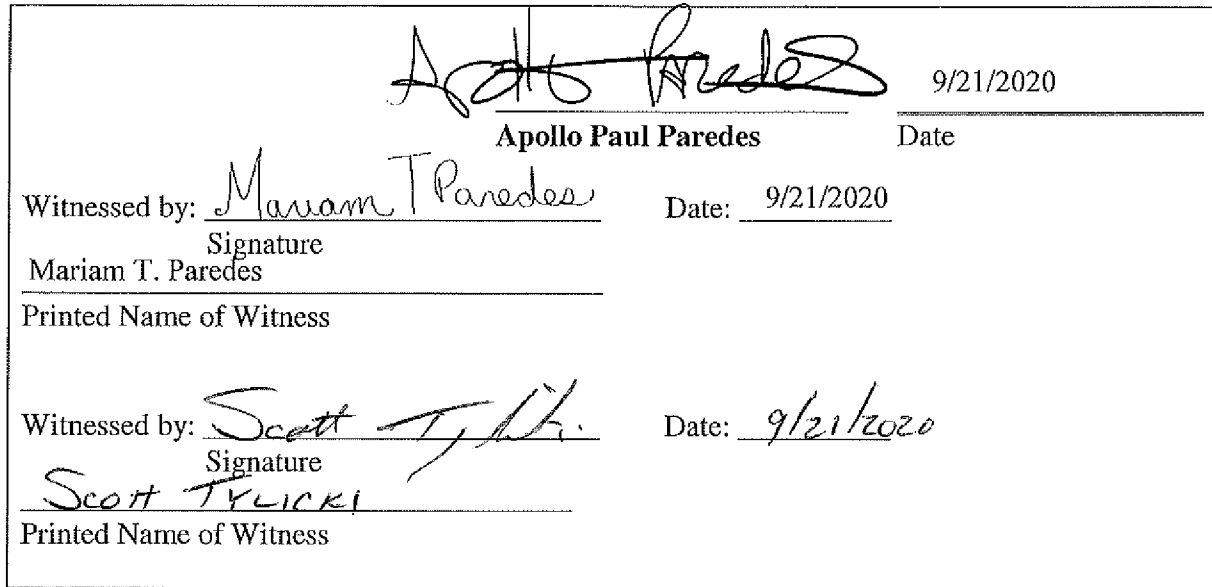 Apollo Paredes 9/21/2020
Apollo Paul Paredes Date
Witnessed by: Mariam T Paredes Date: 9/21/2020
Signature
Mariam T. Paredes
Printed Name of Witness
Witnessed by: Scott Tylicki Date: 9/21/2020
Signature
Scott TYLICKI
Printed Name of Witness